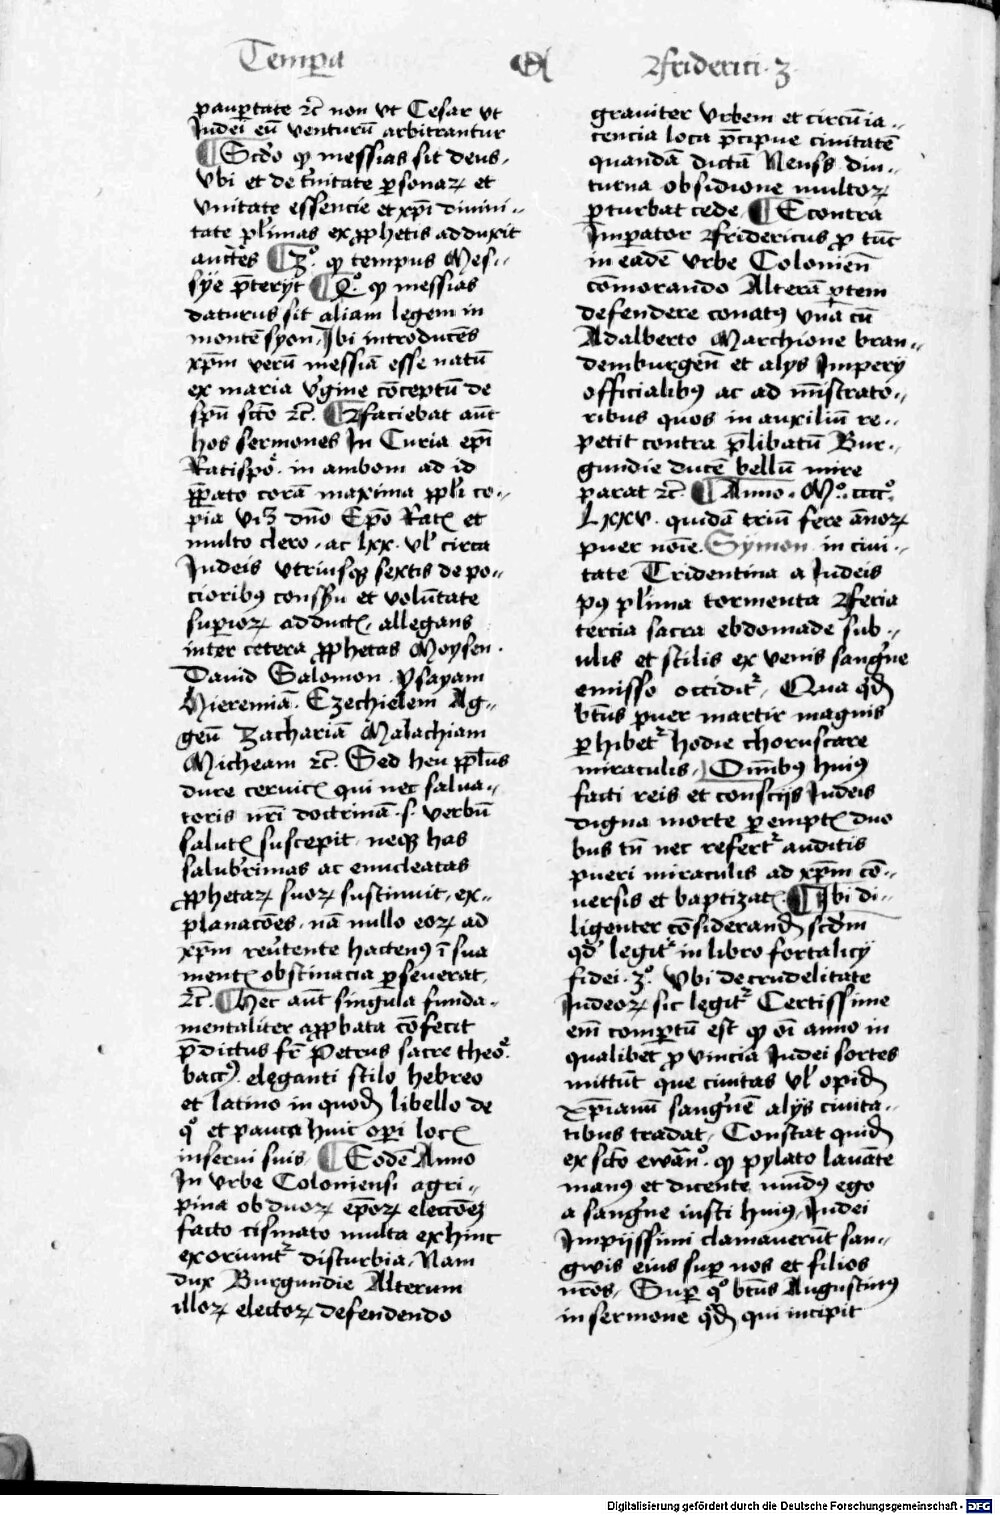 Temp̲a
Friderici · 3 ·
paup̲tate ⁊c̄ non vt Cesar vt
Judei eū venturū arbitrantur
¶ Scd̓o ꝙ messias sit deus,
vbi et de t̓nitate p̲sonaꝝ et
vnitate essencie et xp̄i diuini⸗
tate pl̓imas ex ꝓphetis adduxit
auct̓es ¶ 3º. ꝙ tempus Mes⸗
sye p̄teryt ¶ Qº. ꝙ messias
daturus sit aliam legem in
montē syon, Ibi introducēs
xp̄m verū messiā esse natū
ex maria v̓gine cōceptū de
spū scto ⁊c̄. ¶ Faciebat aūt
hos sermones In Curia ep̄i
Ratispoᷓ. in ambom ad id
p̲p̲ato corā maxima ppl̓i co⸗
pia viꝫ dn̄o Ep̄o Ratꝭ et
multo clero, ac lxx. vl̓ circa
Judeis vtriusqꝫ sextis de po⸗
cioribꝰ consn̄u et volūtate
sup̲ioꝝ adductꝭ, allegans
inter cetera ꝓphetas Moysen.
Dauid Salomon. Ysayam
Hieremiā. Ezechielem Ag⸗
geū Zachariā Malachiam
Micheam ⁊c̄. Sed heu ppl̓us
dure ceruicꝭ qui nec salua⸗
toris nr̄i doctrinā .s. verbū
salutꝭ suscepit neqꝫ has
salub̓rimas ac enucleatas
ꝓphetaꝝ suoꝝ sustinuit, ex⸗
planacōes, nā nullo eoꝝ ad
xp̄m reu̓tente hactenꝰ ī sua
mentꝭ obstinacia p̲seuerat,
⁊c̄. ¶ Hec aūt singula funda⸗
mentaliter app̲bata cōfecit
p̄dictus fr̄ Petrus sacre theoᷓ.
bacc̓ꝰ. eleganti stilo hebreo
et latino in quodā libello de
qº et pauca huic op̲i locꝭ
inserui suis. ¶ Eodē Anno
In vrbe Coloniensi agri⸗
pina ob duoꝝ ep̄oꝝ eleccōeꝫ
facto cismato multa exhinc
exoriuntᷣ disturbia, Nam
dux Burgundie Alterum
illoꝝ electoꝝ defendendo
grauiter vrbem et circūia⸗
cencia loca p̄cipue ciuitatē
quandā dictā Neuss diu⸗
turna obsidione multoꝝ
p̲turbat cede, ¶ Econtra
Imp̲ator Fridericus p̲ tūc
in eadē vrbe Colonien̄
cōmorando Alterā p̲tem
defendere conatꝰ vnā cū
Adalberto Marchione bran⸗
demburgen̄ et alys Impery
officialibꝰ ac ad mīstrato⸗
ribus quos in auxiliū re⸗
petit contra p̄libatū Bur⸗
gundie ducē bellū mire
parat ⁊c̄. ¶ Anno. Mº. ccccº.
Lxxv. quidā triū fere ānoꝝ
puer noīe. Symon in ciui⸗
tate Tridentina a Judeis
pꝰ pl̓ima tormenta Feria
tercia sacra ebdomade sub⸗
ulis et stilis ex venis sang̓ne
emisso occiditᷣ, Qua qd̓
btūs puer martir magnis
p̲hibetᷣ hodie choruscare
miraculis, Om̄ibꝰ huiꝰ
facti reis et consciis Judeis
digna morte p̲emptꝭ duo
bus tn̄ nec refertᷣ auditis
pueri miraculis ad xp̄m cō⸗
uersis et baptizatꝭ. ¶ Ibi di⸗
ligenter cōsiderand̓ scdm̄
qd̓ legitᷣ in libro fortalicy
fidei. 3º. Vbi de crudelitate
Judeoꝝ sic legitᷣ Certissime
em̄ comp̲tū est ꝙ oī anno in
qualibet p̲uincia Judei sortes
mittūt que ciuitas vl̓ opid̓
xp̄ianū sang̓nē alys ciuita⸗
tibus tradat, Constat quid̓
ex scto ewāᷓ. ꝙ pylato lauāte
manꝰ et dicente mūdꝰ ego
a sang̓ne iusti huiꝰ, Judei
Impijssimi clamauerūt san⸗
gwis eius sup̲ nos et filios
nr̄os, Sup̲ qº btūs Augustinꝰ
in sermone qd̓ qui incipit
Digitalisierung gefördert durch die Deutsche Forschungsgemeinschaft - DFG